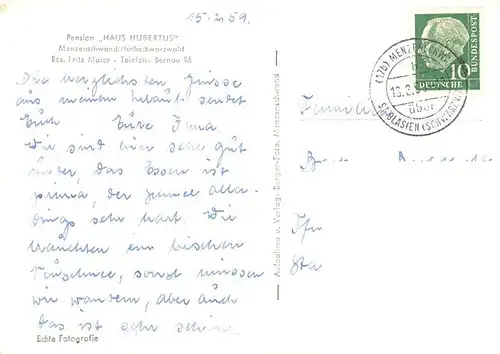 15.2.59.
Pension „HAUS HUBERTUS"
Menzenschwand/Hochschwarzwald
Bes. Fritz Maier - Telefon: Bernau 85
Die herzlichsten Grüsse
aus meinem Urlaub sendet
Euch Eure Irma
Wir sind hier sehr gut
unter, das Essen ist
prima, der Schnee aller-
dings sehr hart. Wir
bräuchten ein bischen
Neuschnee, sonst müssen
wir wandern, aber auch
das ist sehr schön.
Echte Fotografie
Aufnahme u. Verlag: Berger-Foto, Menzenschwand
DEUTSCHE BUNDESPOST
10
(17b) MENZENSCHWAND
über
ST. BLASIEN (SCHWARZW)
Familie